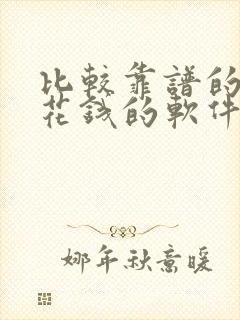 比較靠譜的
花錢的軟件
娜年秋意暖